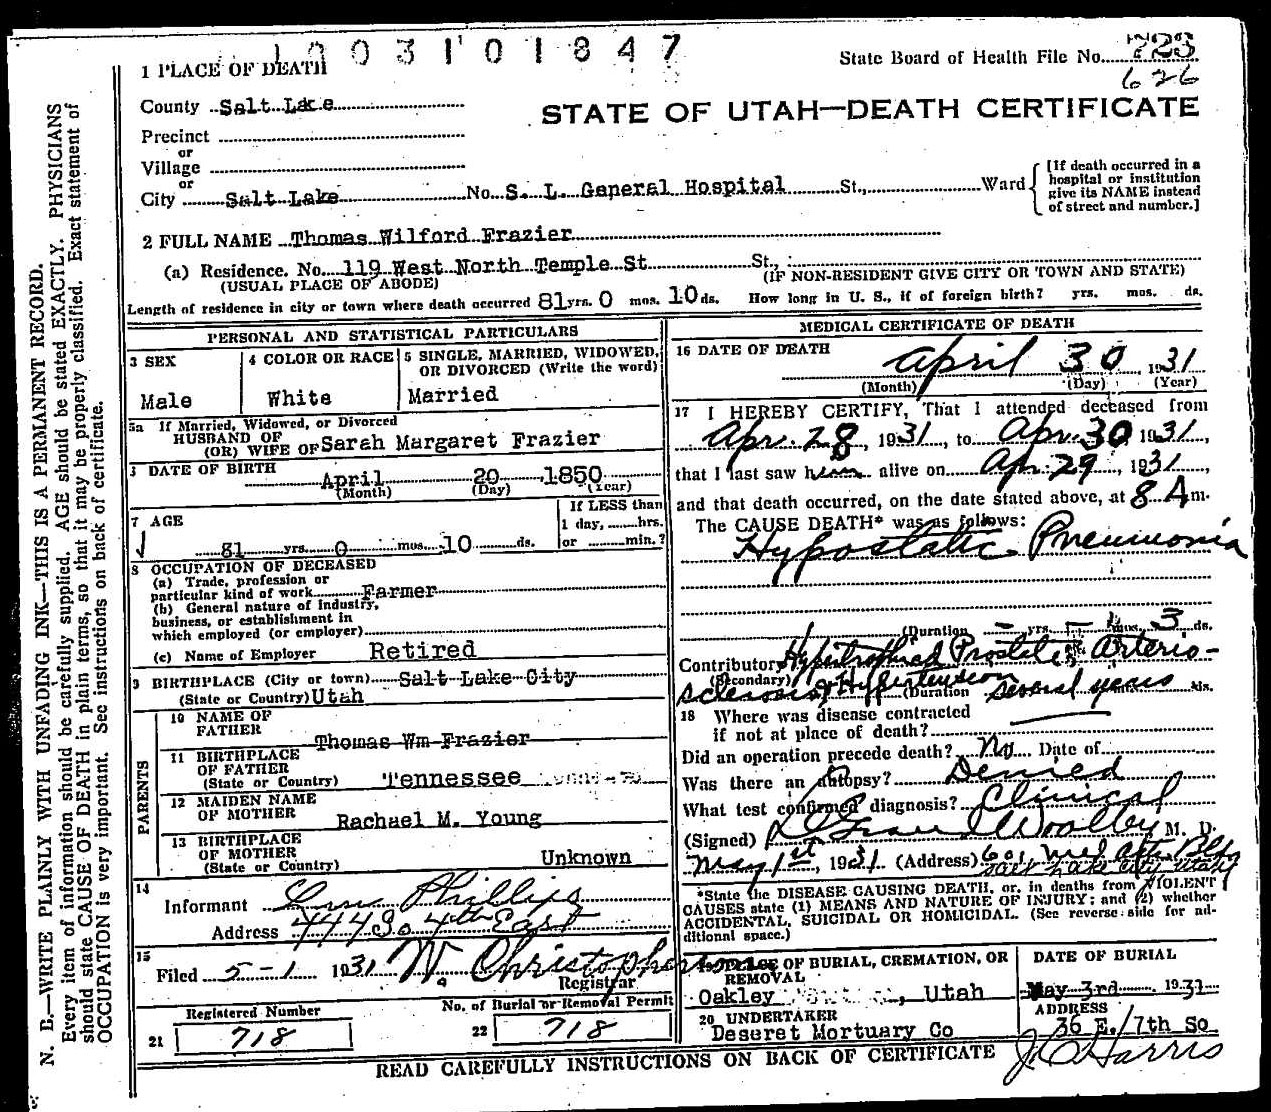 1003101847
State Board of Health File No. 723
626
1 PLACE OF DEATH
County Salt Lake
STATE OF UTAH—DEATH CERTIFICATE
Precinct
or
Village
or
City Salt Lake No. S. L. General Hospital St., Ward
[If death occurred in a
hospital or institution
give its NAME instead
of street and number.]
2 FULL NAME Thomas Wilford Frazier
(a) Residence. No. 119 West North Temple St St.,
(USUAL PLACE OF ABODE) (IF NON-RESIDENT GIVE CITY OR TOWN AND STATE)
Length of residence in city or town where death occurred 81 yrs. 0 mos. 10 ds. How long in U. S., if of foreign birth? yrs. mos. ds.
PERSONAL AND STATISTICAL PARTICULARS
3 SEX
Male
4 COLOR OR RACE
White
5 SINGLE, MARRIED, WIDOWED,
OR DIVORCED (Write the word)
Married
5a If Married, Widowed, or Divorced
HUSBAND OF
(OR) WIFE OF Sarah Margaret Frazier
DATE OF BIRTH
April 20, 1850
(Month) (Day) (Year)
7 AGE
81 yrs. 0 mos. 10 ds.
If LESS than
1 day, hrs.
or min.?
8 OCCUPATION OF DECEASED
(a) Trade, profession or
particular kind of work Farmer
(b) General nature of industry,
business, or establishment in
which employed (or employer)
(c) Name of Employer Retired
9 BIRTHPLACE (City or town) Salt Lake City
(State or Country) Utah
PARENTS
10 NAME OF
FATHER Thomas Wm Frazier
11 BIRTHPLACE
OF FATHER
(State or Country) Tennessee
12 MAIDEN NAME
OF MOTHER Rachael M. Young
13 BIRTHPLACE
OF MOTHER
(State or Country) Unknown
14
Informant Phillips
Address 444 So 4th East
15
Filed 5-1 1931 W. Christopherson
Registrar
Registered Number
21 718
No. of Burial or Removal Permit
22 718
MEDICAL CERTIFICATE OF DEATH
16 DATE OF DEATH
April 30, 1931
(Month) (Day) (Year)
17 I HEREBY CERTIFY, That I attended deceased from
Apr. 28, 1931, to Apr. 30, 1931,
that I last saw him alive on Apr. 29, 1931,
and that death occurred, on the date stated above, at 8 A m.
The CAUSE DEATH* was as follows:
Hypostatic Pneumonia
(Duration - yrs. - mos. 3 ds.
Contributory Hypertrophied Prostate; Arterio-
(Secondary)
sclerosis & Hypertension (Duration several years ds.
18 Where was disease contracted
if not at place of death?
Did an operation precede death? No Date of
Was there an autopsy? Denied
What test confirmed diagnosis? Clinical
(Signed) Woolley M. D.
May 1st, 1931. (Address) 601 Med Arts Bldg
Salt Lake City, Utah
*State the DISEASE CAUSING DEATH, or, in deaths from VIOLENT
CAUSES state (1) MEANS AND NATURE OF INJURY; and (2) whether
ACCIDENTAL, SUICIDAL OR HOMICIDAL. (See reverse side for ad-
ditional space.)
19 PLACE OF BURIAL, CREMATION, OR
REMOVAL
Oakley, Utah
DATE OF BURIAL
May 3rd 1931
20 UNDERTAKER
Deseret Mortuary Co
ADDRESS
36 E. 7th So
J C Harris
READ CAREFULLY INSTRUCTIONS ON BACK OF CERTIFICATE
N. B.—WRITE PLAINLY WITH UNFADING INK—THIS IS A PERMANENT RECORD.
Every item of information should be carefully supplied. AGE should be stated EXACTLY. PHYSICIANS
should state CAUSE OF DEATH in plain terms, so that it may be properly classified. Exact statement of
OCCUPATION is very important. See instructions on back of certificate.